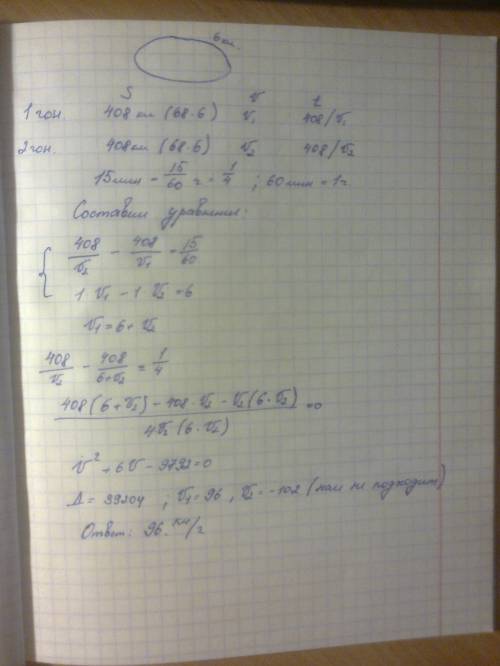 6 км.
S v t
1 гон. 408 км (68·6) v₁ 408/v₁
2 гон. 408 км (68·6) v₂ 408/v₂
15 мин = 15/60 ч = 1/4 ; 60 мин = 1 ч
Составим уравнения:
408/v₂ - 408/v₁ = 15/60
1·v₁ - 1·v₂ = 6
v₁ = 6 + v₂
408/v₂ - 408/6+v₂ = 1/4
408(6+v₂) - 408·v₂ - v₂(6·v₂) / 4v₂(6·v₂) = 0
v² + 6v - 9792 = 0
Δ = 39204 ; v₁ = 96 , v₂ = -102 (нам не подходит)
Ответ: 96 км/ч